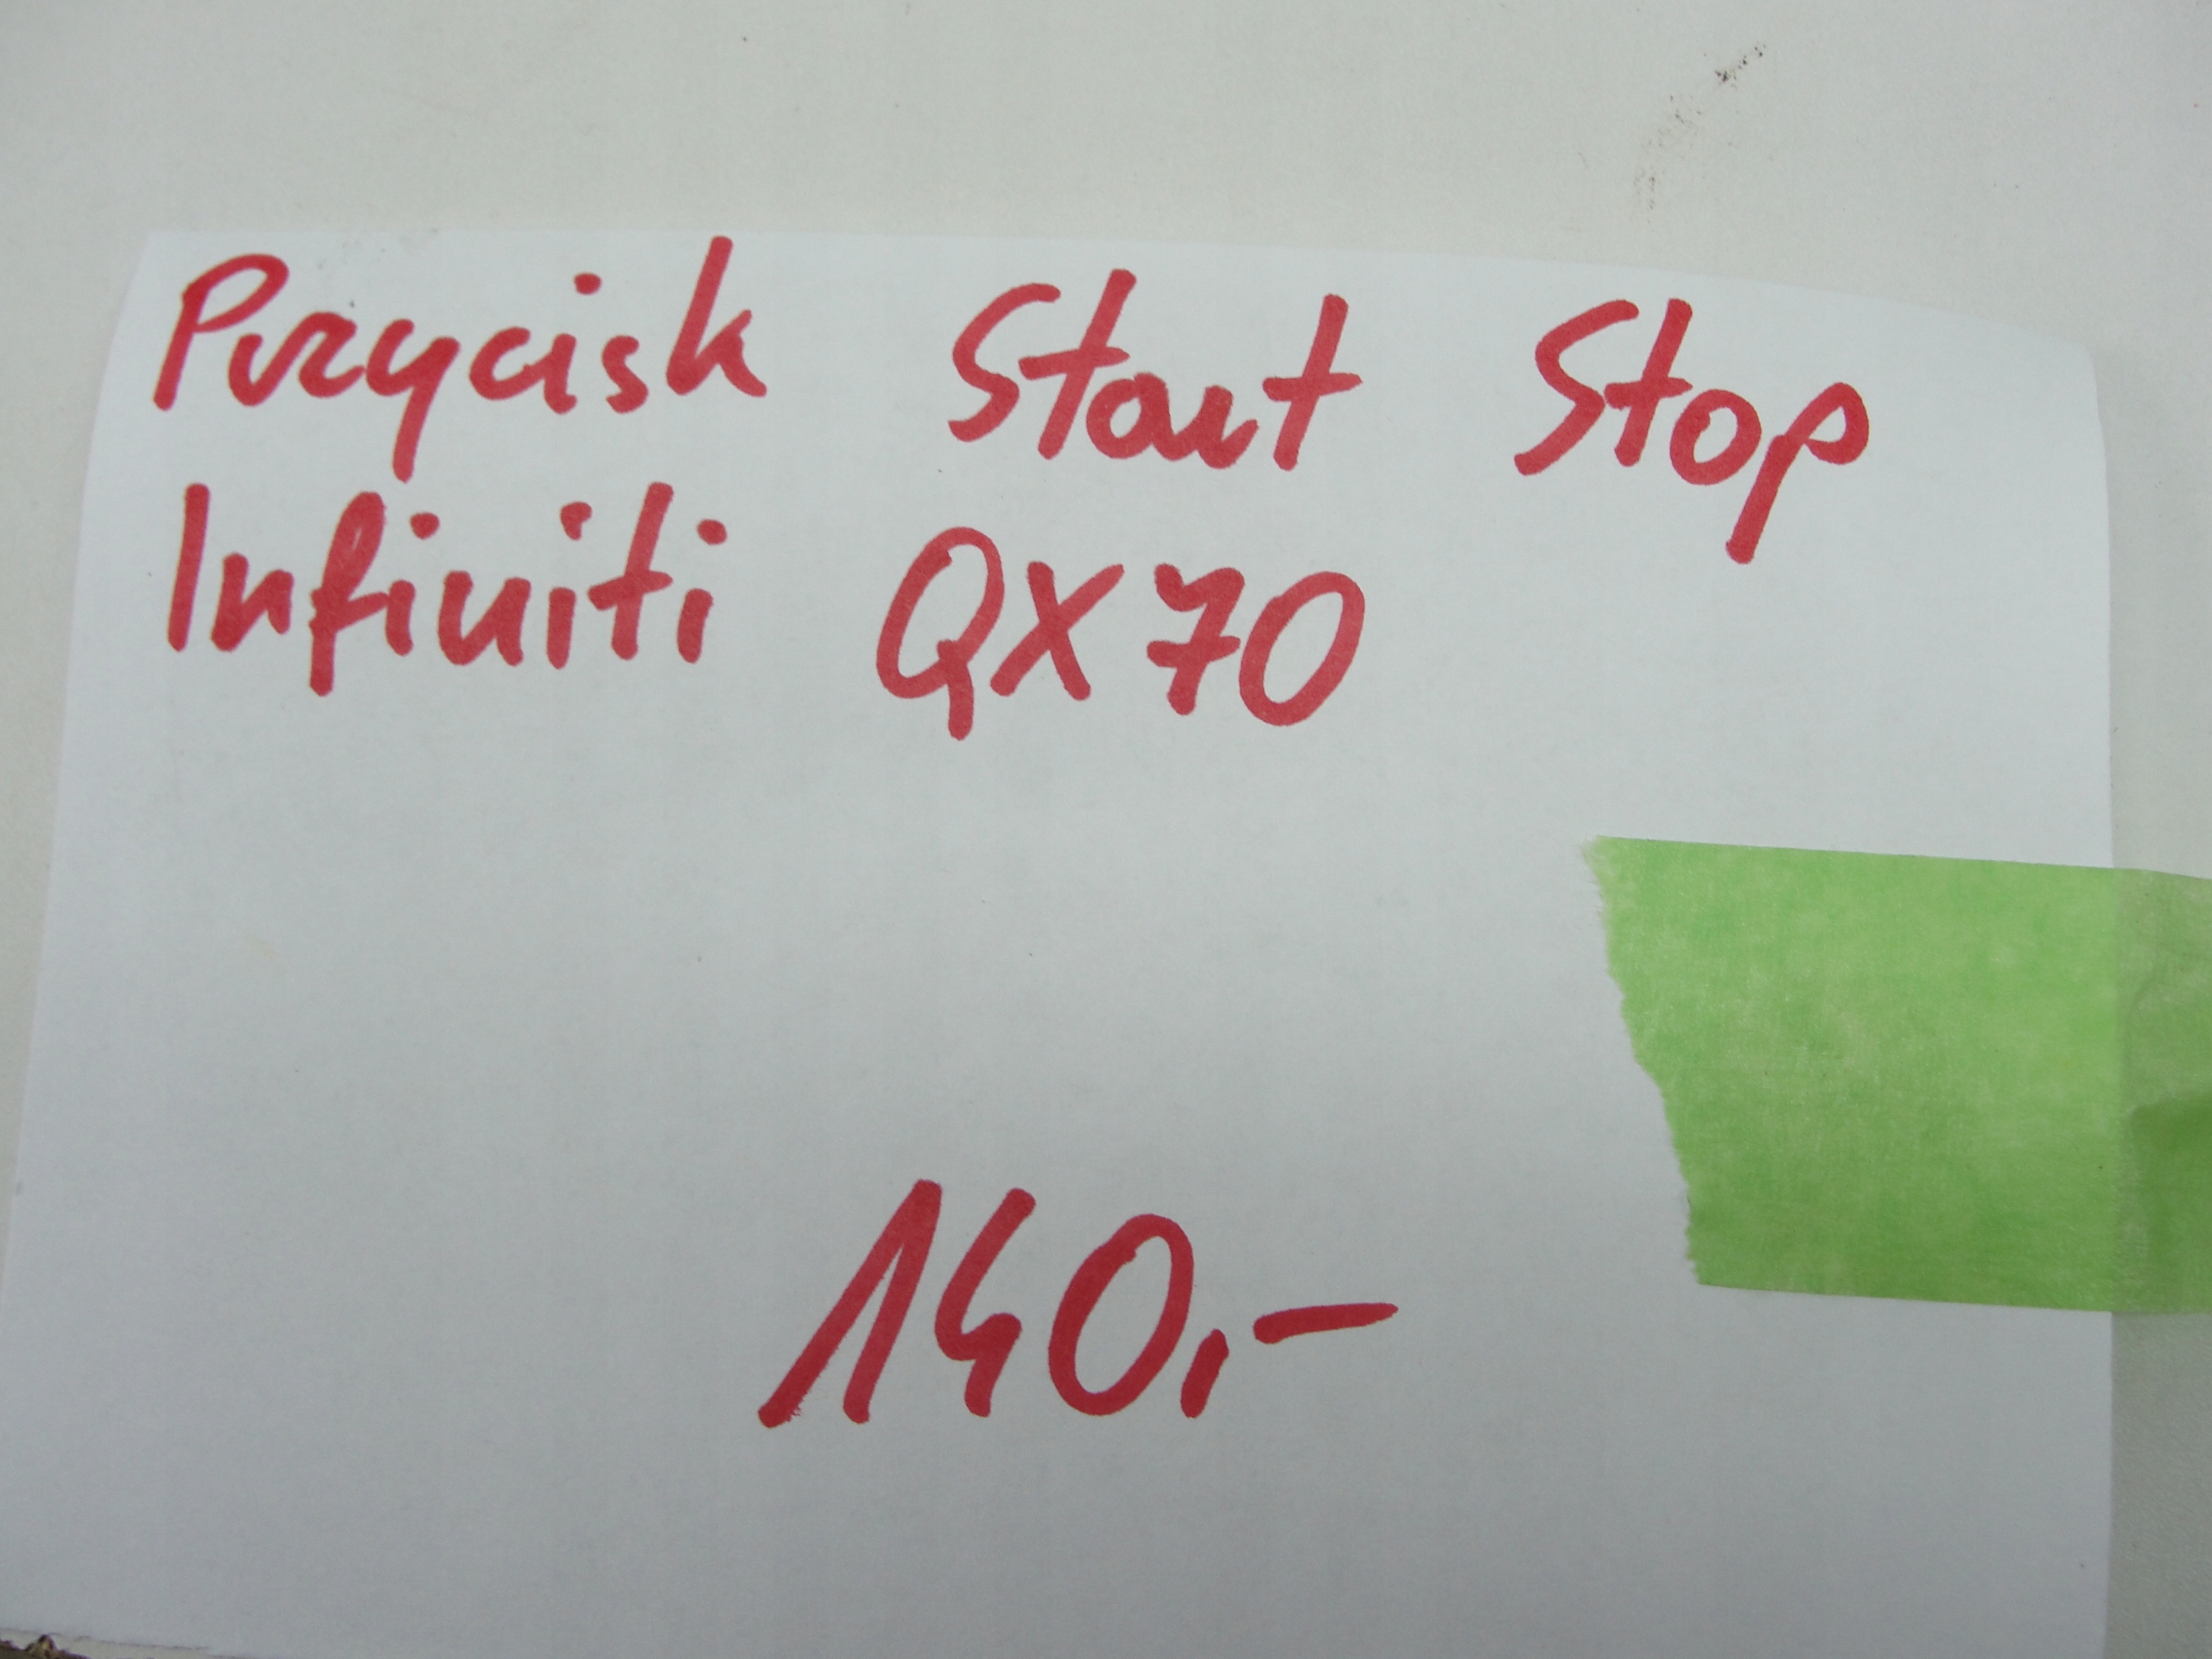 Przycisk Start Stop
Infiniti QX70
140,-